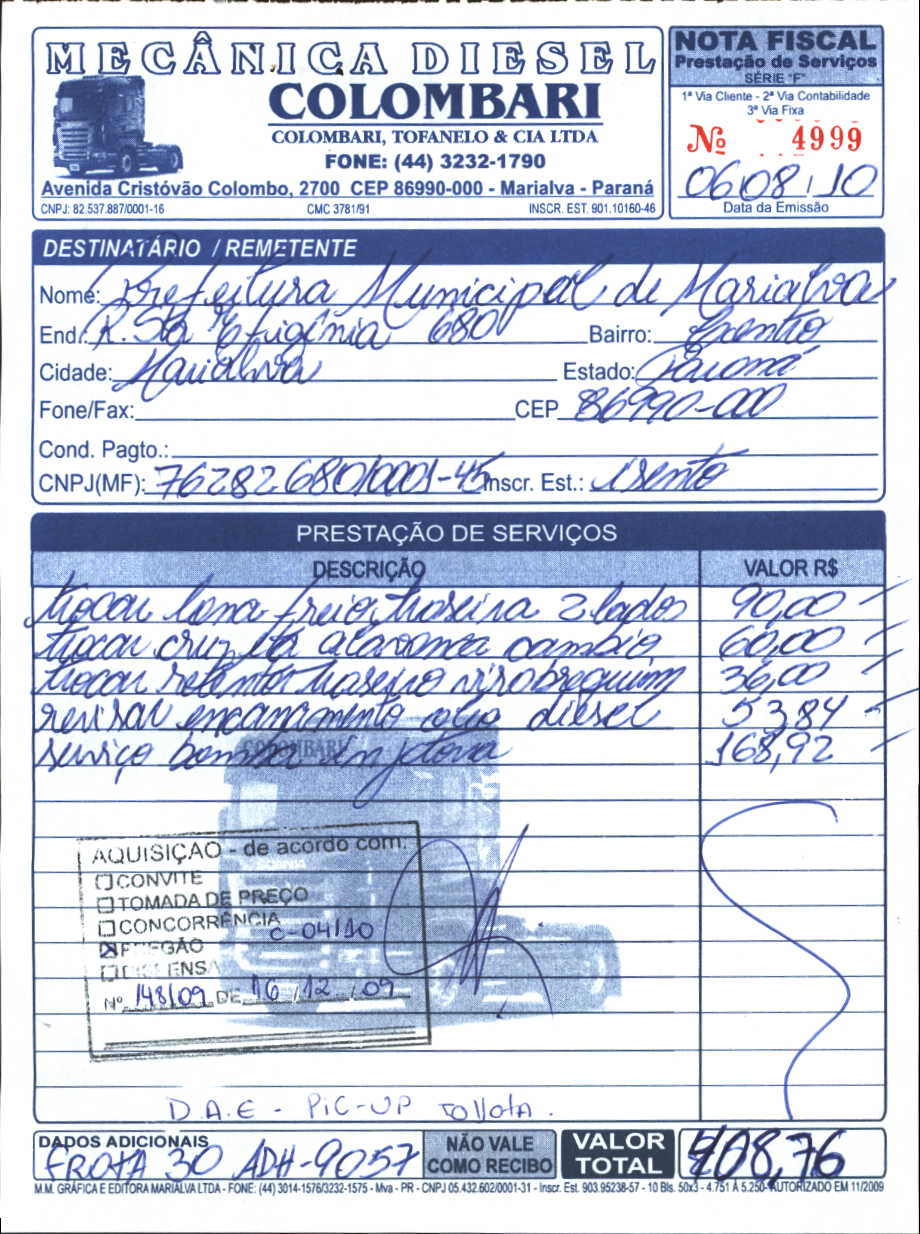 MECÂNICA DIESEL
COLOMBARI
COLOMBARI, TOFANELO & CIA LTDA
FONE: (44) 3232-1790
Avenida Cristóvão Colombo, 2700 CEP 86990-000 - Marialva - Paraná
CNPJ: 82.537.887/0001-16 CMC 3781/91 INSCR. EST. 901.10160-46
NOTA FISCAL
Prestação de Serviços
SÉRIE "F"
1ª Via Cliente - 2ª Via Contabilidade
3ª Via Fixa
Nº 4999
06/08/10
Data da Emissão
DESTINATÁRIO / REMETENTE
Nome: Prefeitura Municipal de Marialva
End.: R. Sta Efigênia 680 Bairro: Centro
Cidade: Marialva Estado: Paraná
Fone/Fax: CEP 86990-000
Cond. Pagto.:
CNPJ(MF): 76282680/0001-45 Inscr. Est.: isento
PRESTAÇÃO DE SERVIÇOS
DESCRIÇÃO VALOR R$
trocar lona freio traseira 2 lados 90,00
trocar cruzeta alavanca cambio 60,00
trocar retentor traseiro virabrequim 36,00
revisar encanamento oleo diesel 53,84
serviço bomba injetora 168,92
COLOMBARI
SCANIA
AQUISIÇÃO - de acordo com:
CONVITE
TOMADA DE PREÇO
CONCORRÊNCIA
C-04/10
PREGÃO
DISPENSA
Nº 148/09 DE 16/12/09
D.A.E - PiC-UP Toyota.
DADOS ADICIONAIS
FROTA 30 ADH-9057
NÃO VALE
COMO RECIBO
VALOR
TOTAL
408,76
M.M. GRÁFICA E EDITORA MARIALVA LTDA - FONE: (44) 3014-1576/3232-1575 - Mva - PR - CNPJ 05.432.602/0001-31 - Inscr. Est. 903.95238-57 - 10 Bls. 50x3 - 4.751 À 5.250- AUTORIZADO EM 11/2009